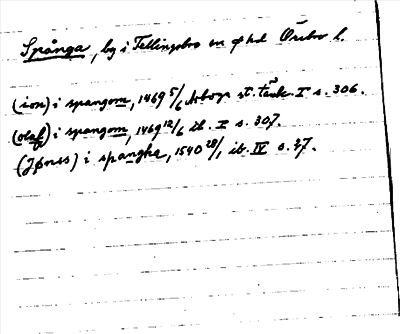 Spånga, by i Fellingsbro sn o hd Örebro l.
(ion) i spangom, 1469 5/6 Arboga st. tänk. I s. 306.
(olaff) i spangom, 1469 12/6 ib. I s. 307.
(Jönss) i spangha, 1540 28/1 ib. IV s. 37.